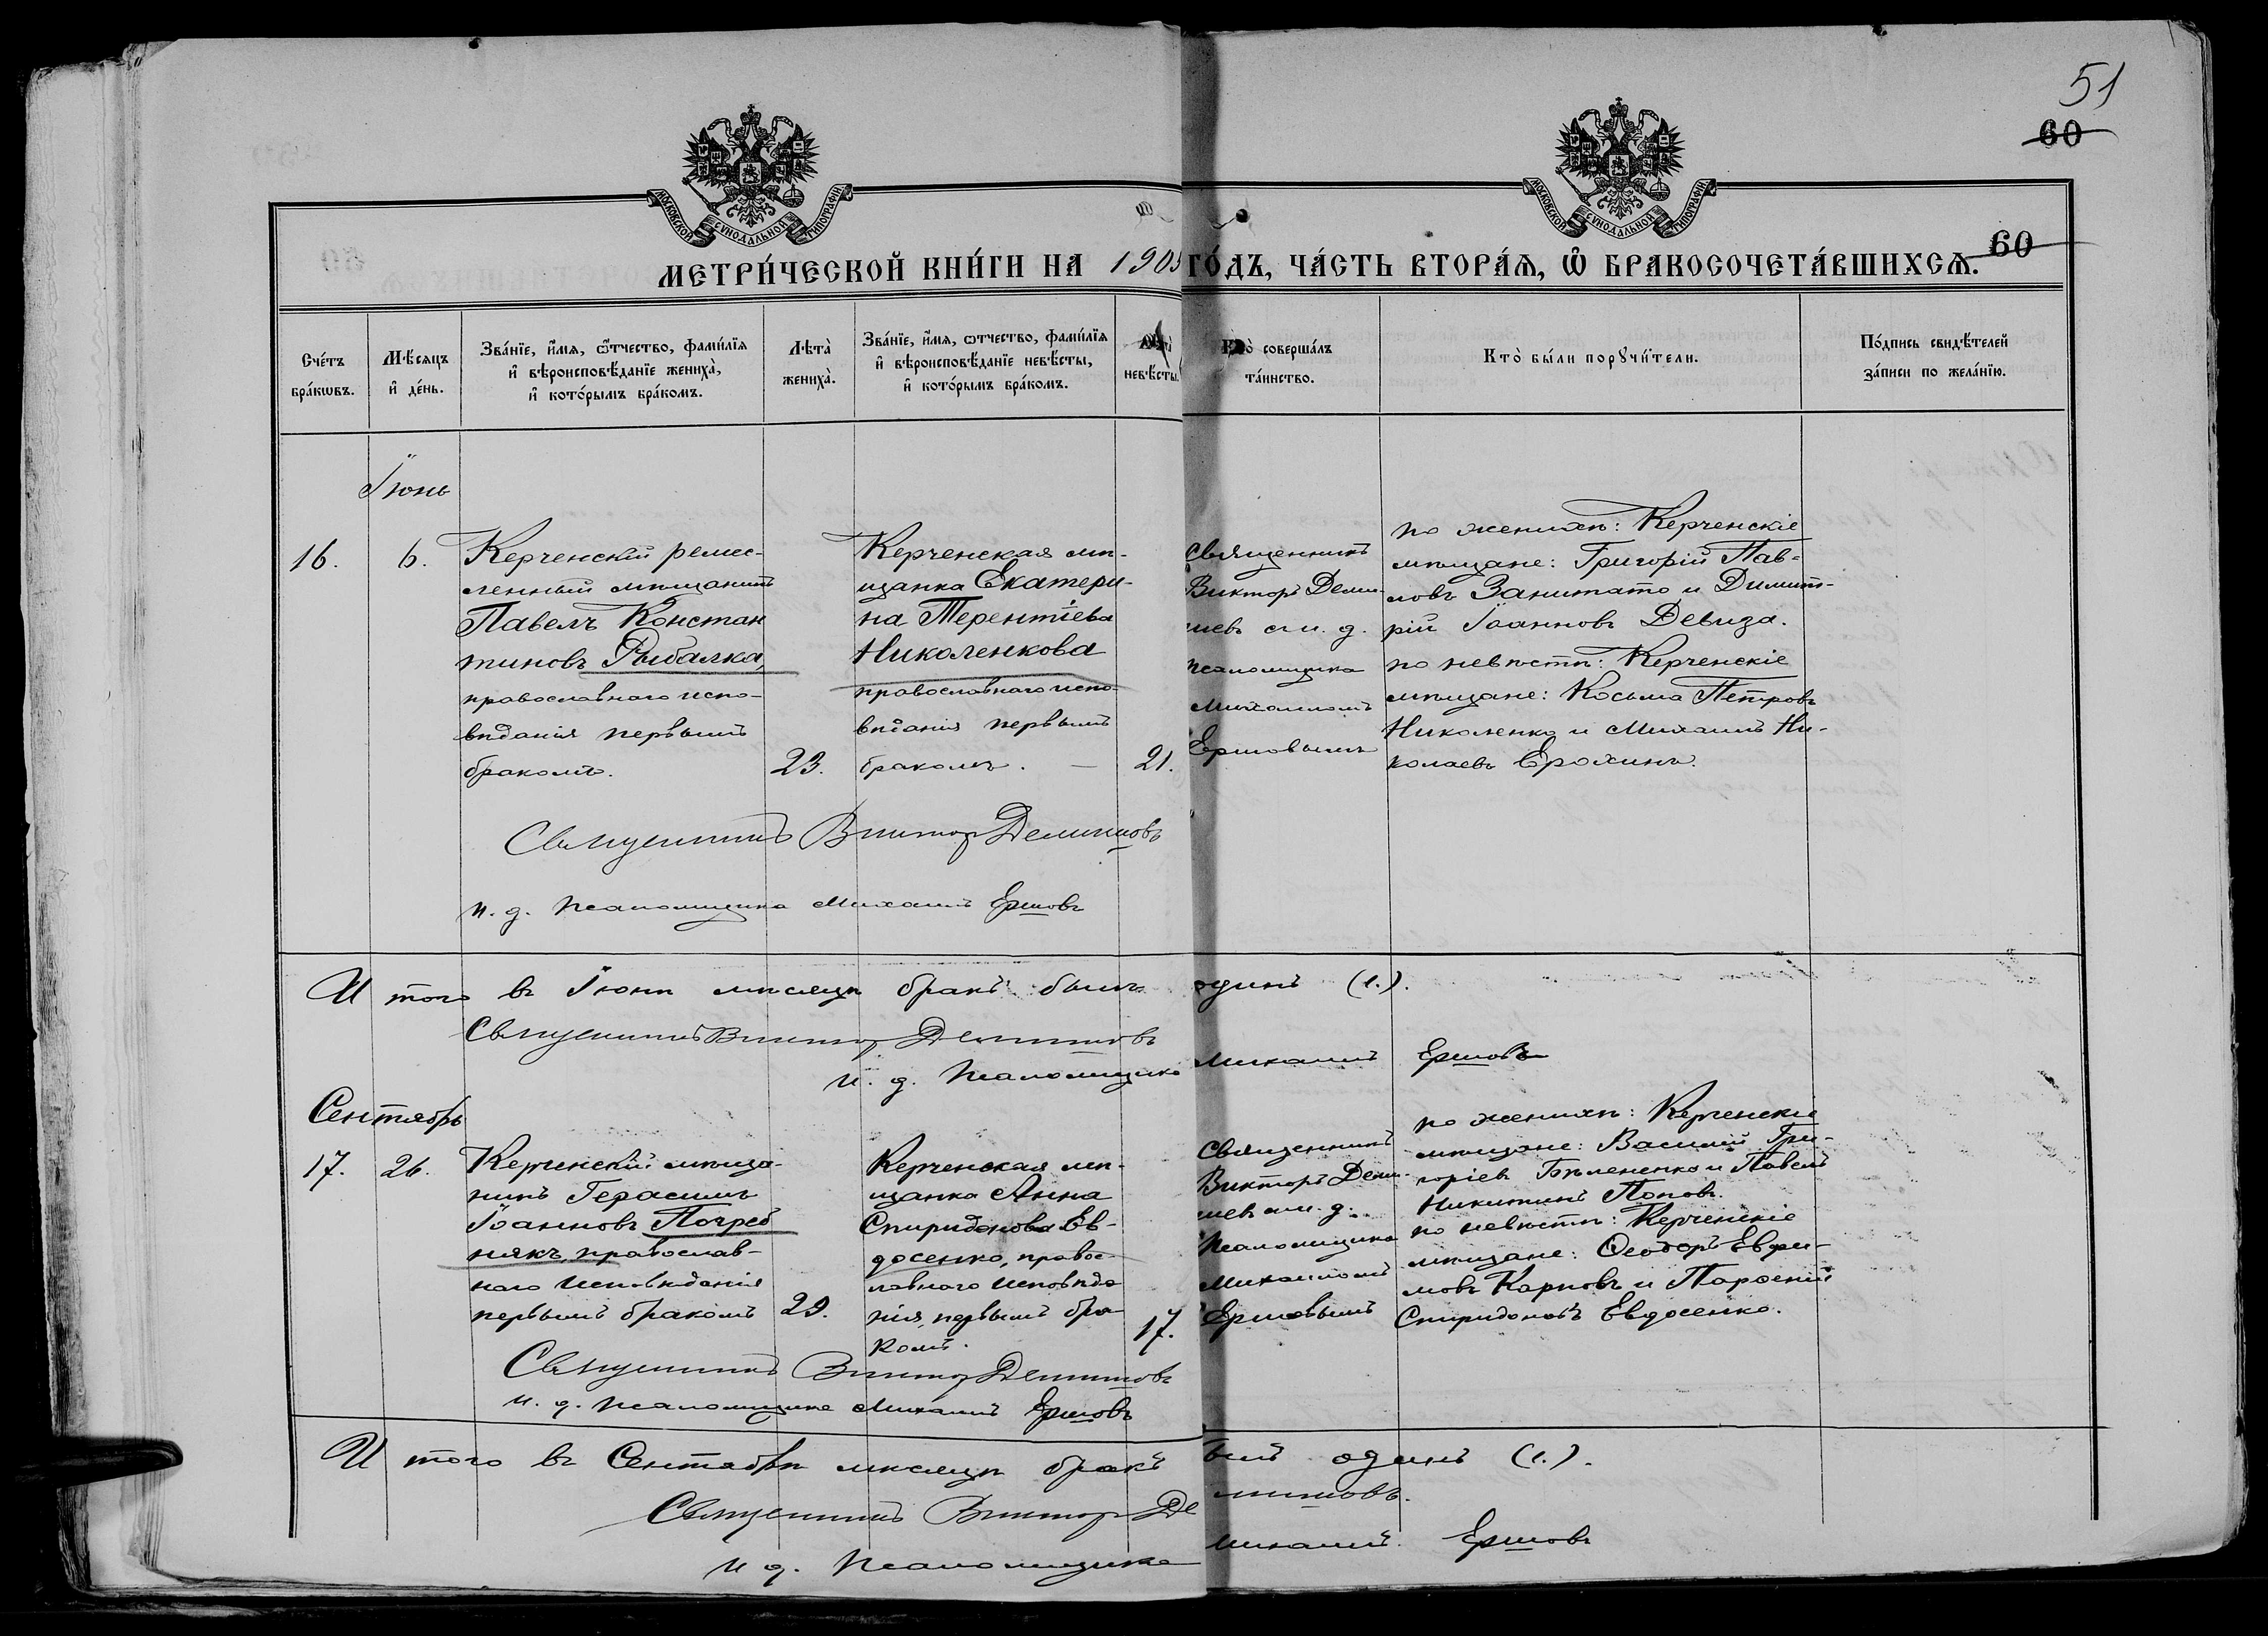 51
60
МОСКОВСКОЙ СѴНОДАЛЬНОЙ ТИПОГРАФІИ
МОСКОВСКОЙ СѴНОДАЛЬНОЙ ТИПОГРАФІИ
МЕТРИ́ЧЕСКОЙ КНИ́ГИ НА 1905 ГО́ДЪ, ЧА́СТЬ ВТОРА́Ѧ, Ѽ БРАКОСОЧЕТА́ВШИХСѦ. 60
Сче́тъ бра́кѡвъ.
Мѣ́сяцъ и҆ де́нь.
Зва́нїе, и҆́мя, ѻ҆́тчество, фамі́лїя и҆ вѣроисповѣ́данїе жениха̀, и҆ кото́рымъ бра́комъ.
Лѣта̀ жениха̀.
Зва́нїе, и҆́мя, ѻ҆тчество, фамі́лїя и҆ вѣроисповѣ́данїе невѣ́сты, и҆ кото́рымъ бра́комъ.
невѣ́сты.
Кто̀ соверша́лъ та́инство.
Кто̀ бы́ли порꙋчи́тели.
По́дпись свидѣ́телей за́писи по жела́нїю.
Іюнь
16.
6.
Керченскій ремес-
ленный мѣщанинъ
Павелъ Констан
тиновъ Рыбалка,
православнаго испо-
вѣданія первымъ
бракомъ.
23.
Керченская мѣ-
щанка Екатери-
на Терентіева
Николенкова
православнаго испо-
вѣданія первымъ
бракомъ. —
21.
Священникъ
Викторъ Деми-
шевъ с и. д.
псаломщика
Михаиломъ
Ершовымъ
по женихѣ: Керченскіе
мѣщане: Григорій Пав-
ловъ Занитато и Димит-
рій Іоанновъ Девиза.
по невѣстѣ: Керченскіе
мѣщане: Косьма Петровъ
Николенко и Михаилъ Ни-
колаевъ Ерохинъ.
Священникъ Викторъ
и. д. псаломщика Михаилъ Ершовъ
И того въ Іюнѣ мѣсяцѣ бракъ былъ одинъ (1.).
Священникъ Викторъ
и. д. Псаломщика Михаилъ Ершовъ
Сентябрь
17.
26.
Керченскій мѣща-
нинъ Герасимъ
Іоанновъ Погреб
някъ, православ-
наго исповѣданія
первымъ бракомъ
29.
Керченская мѣ-
щанка Анна
Спиридонова Ев-
досенко, правос-
лавнаго исповѣда
нія, первымъ бра
комъ.
17.
Священникъ
Викторъ Деми-
шевъ с и. д.
Псаломщика
Михаиломъ
Ершовымъ
по женихѣ: Керченскіе
мѣщане: Василій Гри-
горіев Бѣлененко и Павелъ
Никитинъ Поповъ.
по невѣстѣ: Керченскіе
мѣщане: Ѳеодоръ Евфи-
мовъ Карповъ и Пароеній
Спиридоновъ Евдосенко.
Священникъ Викторъ
и. д. псаломщика Михаилъ Ершовъ
И того въ Сентябрѣ мѣсяцѣ бракъ былъ одинъ (1.).
Священникъ Викторъ
и д. Псаломщика Михаилъ Ершовъ